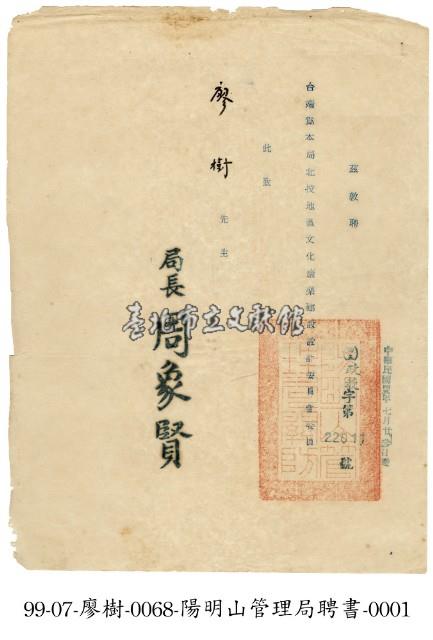 中華民國年七月廿日發
政字第 號
茲敦聘
台端為本局北投地區文化業設計委員會委員
此致
廖樹 先生
局長 周象賢
臺北市立文獻館
99-07-廖樹-0068-陽明山管理局聘書-0001